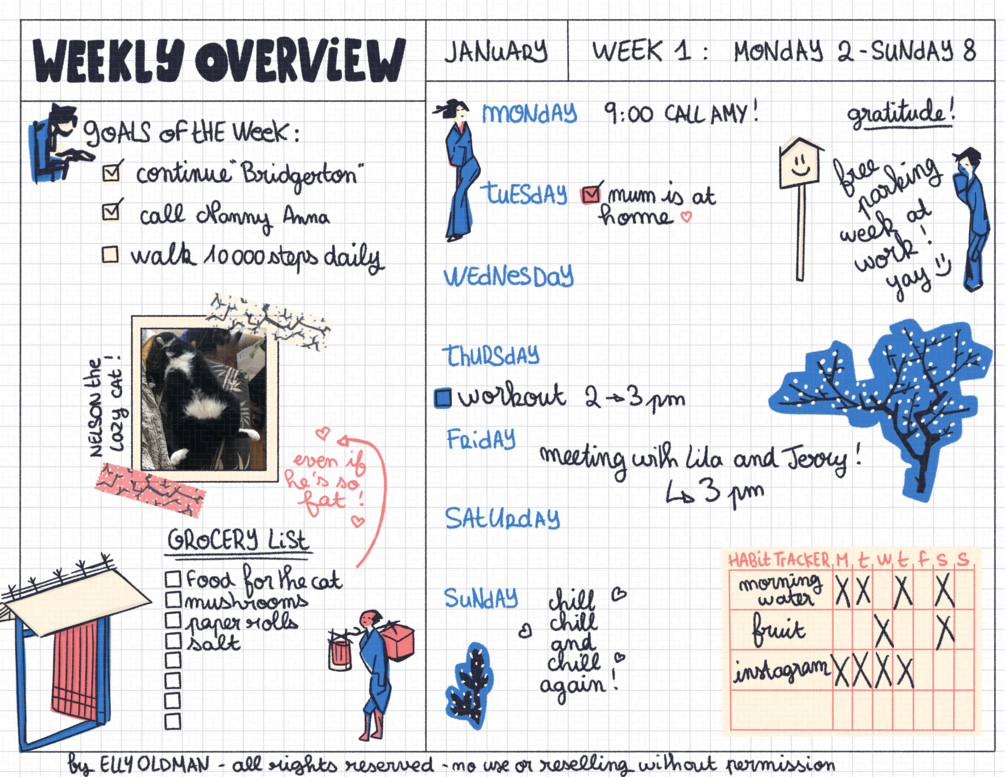 WEEKLY OVERVIEW
JANUARY
WEEK 1: MONDAY 2-SUNDAY 8
GOALS of tHE Week:
continue "Bridgerton"
call Nanny Anna
walk 10000 steps daily
NELSON the
lazy cat!
even if
he's so
fat!
GROCERY LiSt
Food for the cat
mushrooms
paper rolls
salt
MONDAY 9:00 CALL AMY!
TUESDAY mum is at
home
WEDNESDAY
THURSDAY
workout 2→3 pm
FRIDAY meeting with Lila and Jerry!
↳ 3 pm
SATURDAY
SUNDAY chill
chill
and
chill
again!
gratitude!
free
parking
week at
work!
yay
HABIT TRACKER M t W t f S S
morning
water X X X X
fruit X X
instagram X X X X
by ELLY OLDMAN - all rights reserved - no use or reselling without permission